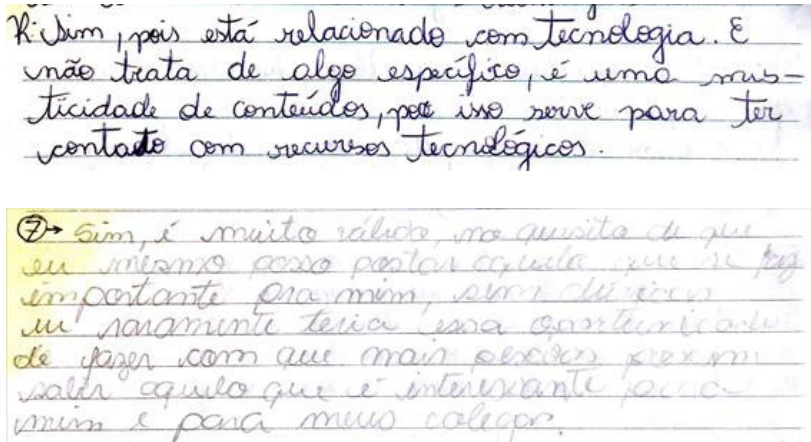 R: Sim, pois está relacionado com tecnologia. E
não trata de algo específico, é uma mis-
ticidade de conteúdos, por isso serve para ter
contato com recursos tecnológicos.
7 → Sim, é muito válido, no quisito de que
eu mesmo posso postar aquilo que se faz
importante pra mim, sem
eu raramente teria essa oportunidade
de fazer com que mais pessoas possam
saber aquilo que é interessante para
mim e para meus colegas.